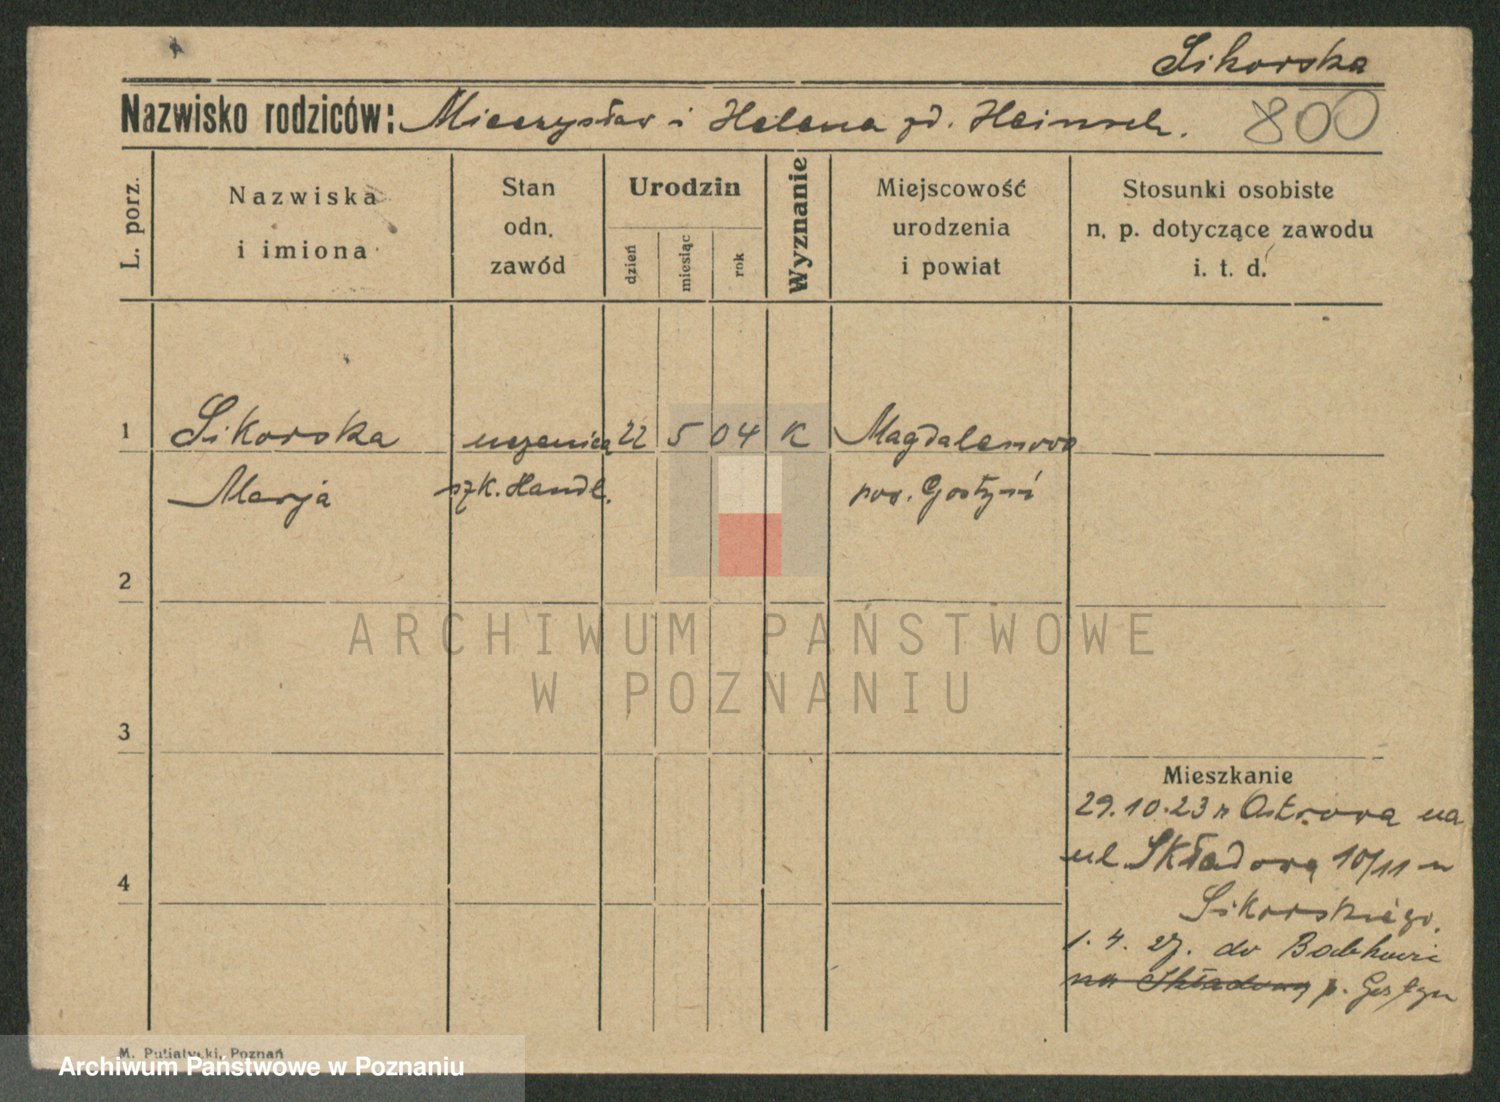 Sikorska
Nazwisko rodziców: Mieczysław i Helena zd. Heinsch. 800
L. porz.
Nazwiska i imiona
Stan odn. zawód
Urodzin
dzień miesiąc rok
Wyznanie
Miejscowość urodzenia i powiat
Stosunki osobiste n. p. dotyczące zawodu i. t. d.
1 Sikorska uczenica 22 5 04 K Magdalenowo
Marja szk. Handl. pow. Gostyń
2
ARCHIWUM PAŃSTWOWE
W POZNANIU
3
Mieszkanie
29.10.23 z Ostrowa na
ul. Składową 10/11 u
4
Sikorskiego.
1. 4. 27. do
na Składową p. Gostyn
M. Putiatycki, Poznań
Archiwum Państwowe w Poznaniu